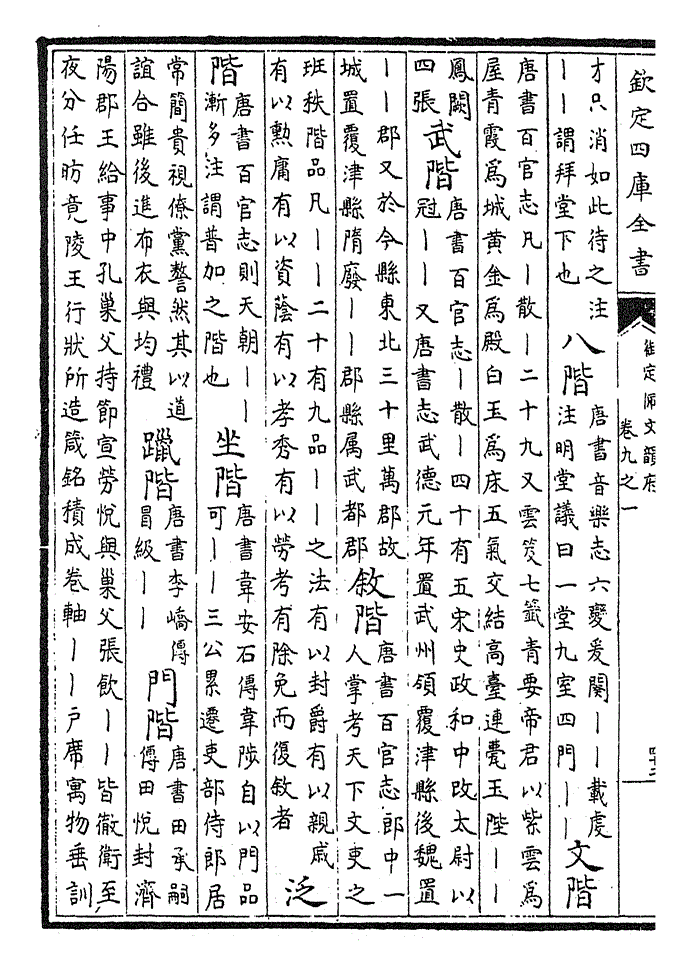 欽定四庫全書
御定佩文韻府
卷九之一
四十三
才只消如此待之注
丨丨謂拜堂下也
八階
唐書音樂志六變爰闋丨丨載虔
注明堂議曰一堂九室四門丨丨
文階
唐書百官志凡丨散丨二十九又雲笈七籤青要帝君以紫雲為
屋青霞為城黄金為殿白玉為床五氣交結高臺連甍玉陛丨丨
鳳闕
四張
武階
唐書百官志丨散丨四十有五宋史政和中改太尉以
冠丨丨又唐書志武德元年置武州領覆津縣後魏置
丨丨郡又於今縣東北三十里萬郡故
城置覆津縣隋廢丨丨郡縣属武都郡
敘階
唐書百官志郎中一
人掌考天下文吏之
班秩階品凡丨丨二十有九品丨丨之法有以封爵有以親戚
有以勲庸有以資蔭有以孝秀有以勞考有除免而復敘者
泛
階
唐書百官志則天朝丨丨
漸多注謂普加之階也
坐階
唐書韋安石傳韋陟自以門品
可丨丨三公累遷吏部侍郎居
常簡貴視僚黨謷然其以道
誼合雖後進布衣與均禮
躐階
唐書李嶠傳
冒級丨丨
門階
唐書田承嗣
傳田悦封濟
陽郡王給事中孔巢父持節宣勞悦與巢父張飲丨丨皆徹衛至
夜分任昉竟陵王行狀所造箴銘積成卷軸丨丨户席寓物垂訓